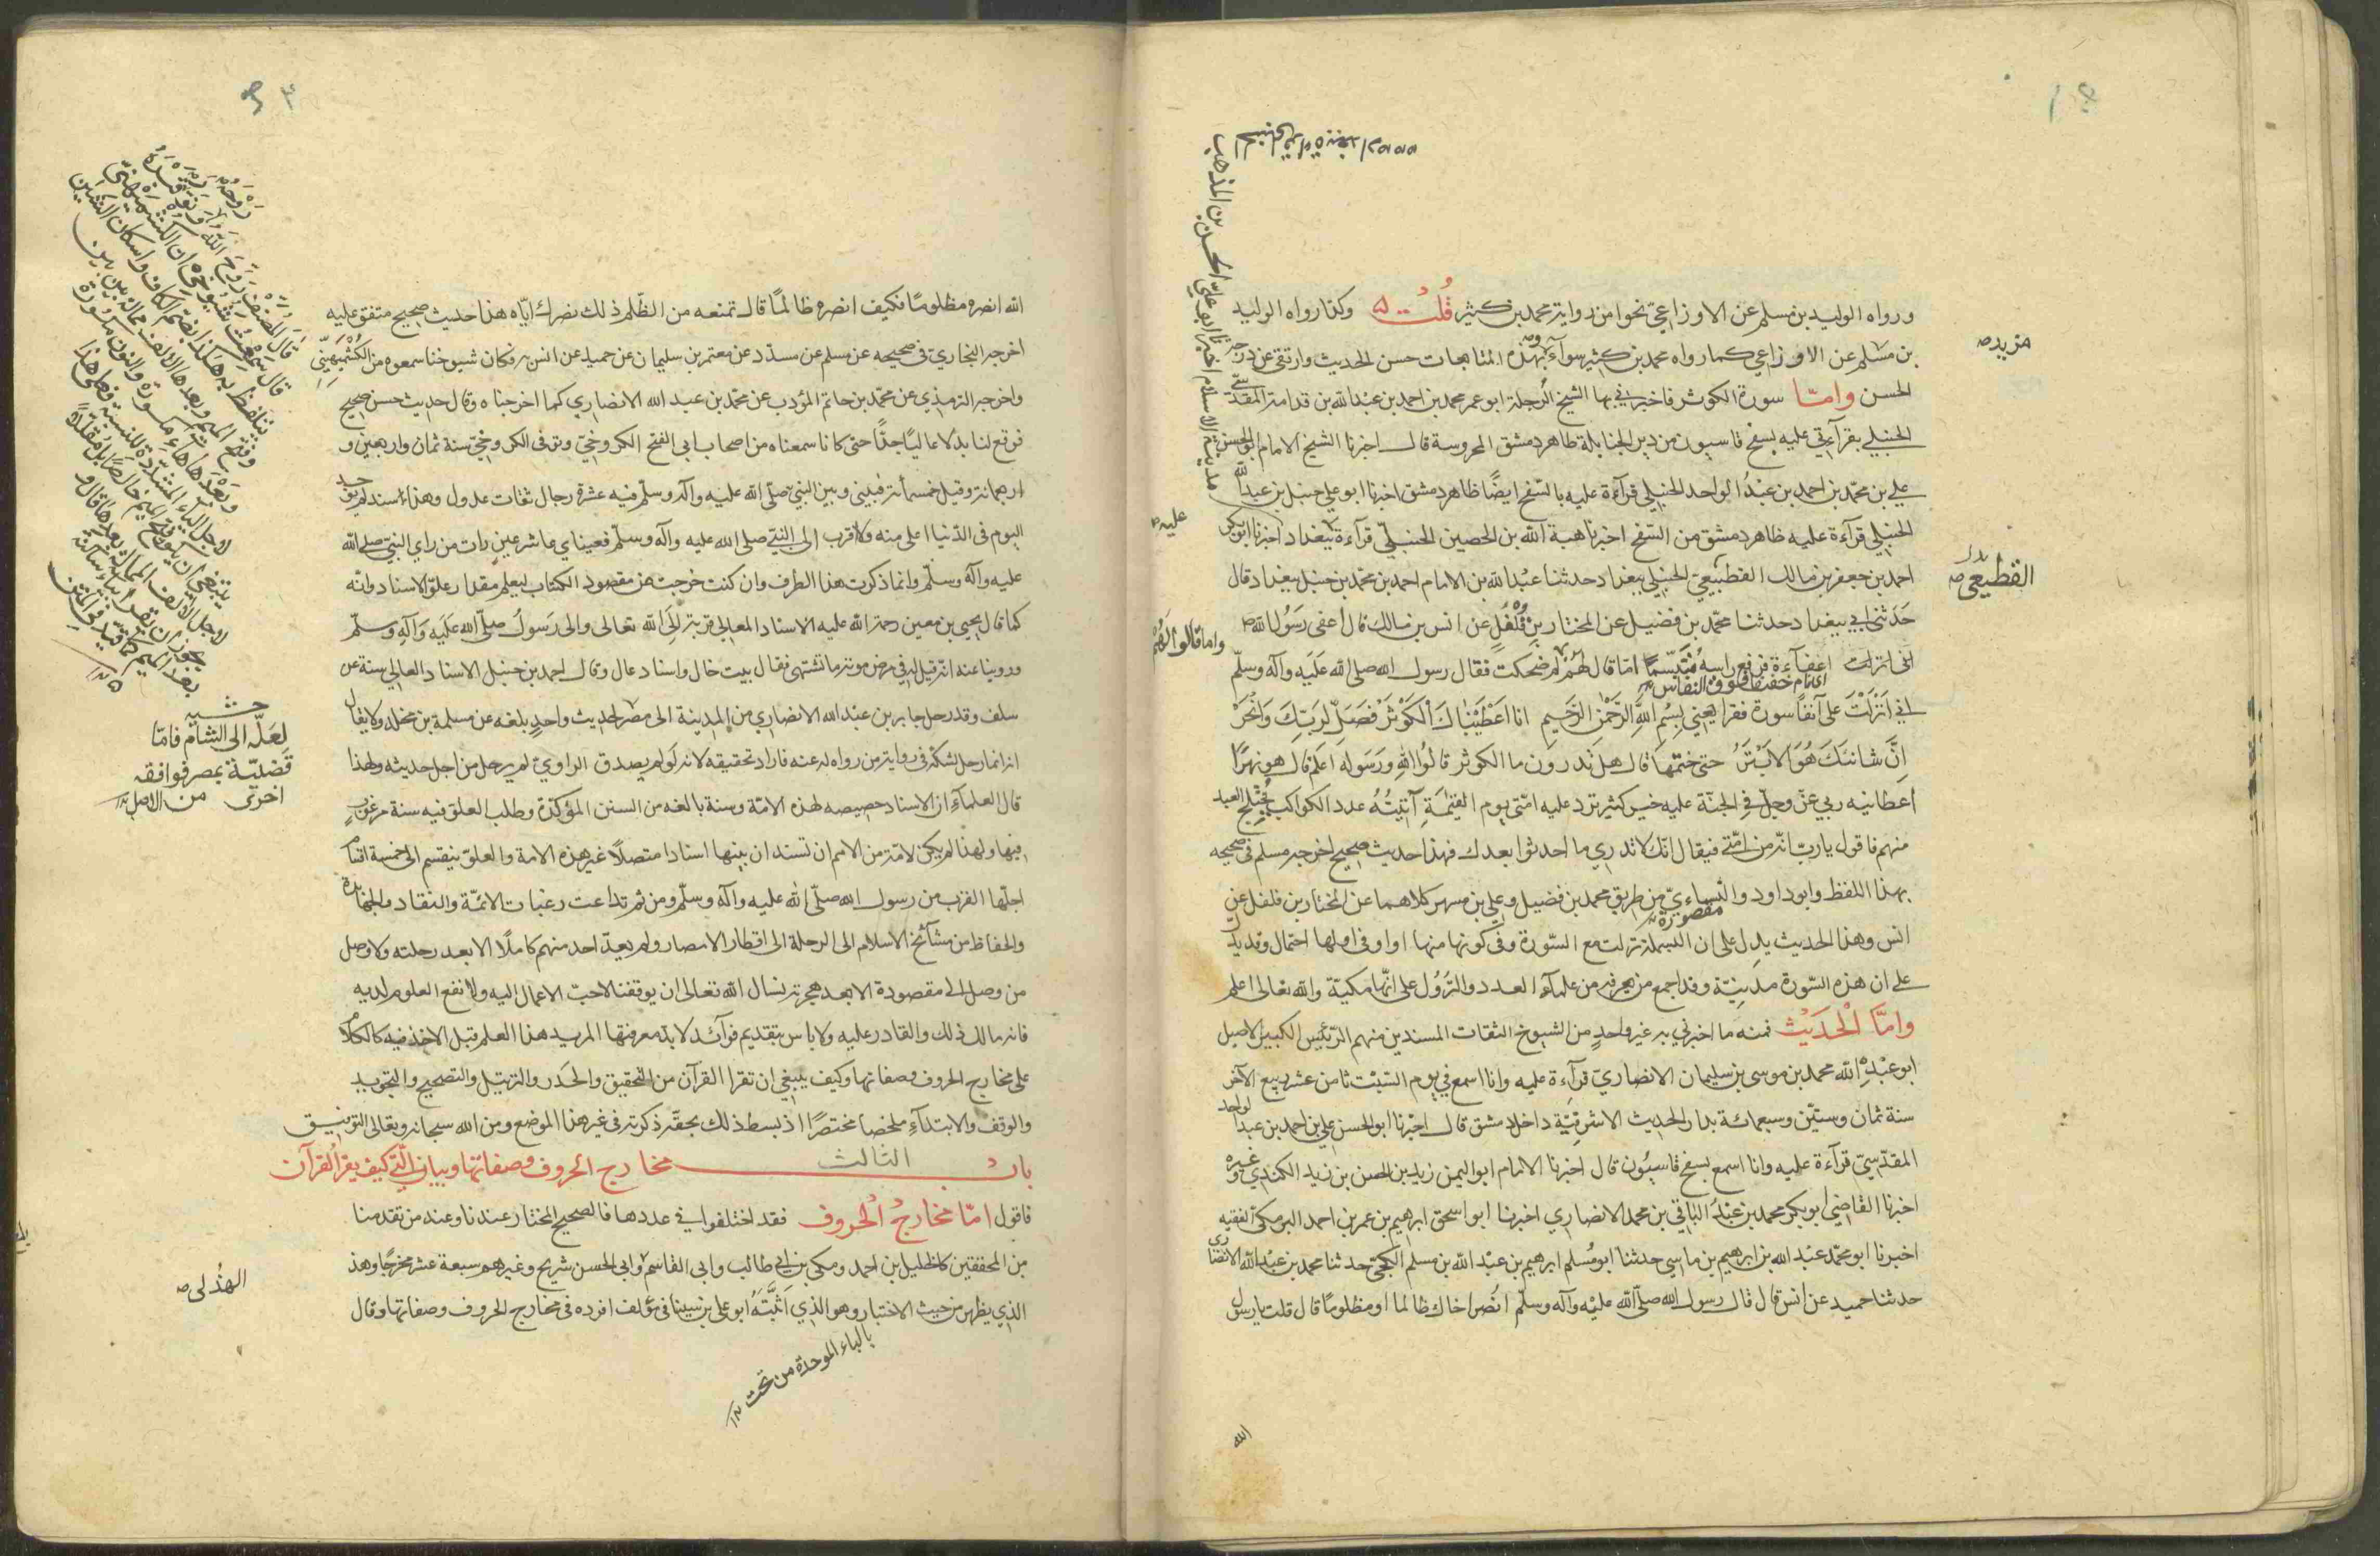 ورواه الوليد بن مسلم عن الاوزاعي نحوا من رواية محمد بن كثير قلت وكذا رواه الوليد
بن مسلم عن الاوزاعي كما رواه محمد بن كثير سوآء بهذه المتابعات حسن الحديث وارتقى عن درجة
الحسن وامّا سورة الكوثر فاخبرني بها الشيخ الرحلة ابو عمر محمد بن احمد بن عبد الله بن قدامة المقدسي
الحنبلي بقرآءتي عليه بسفح قاسيون من دير الحنابلة ظاهر دمشق المحروسة قال اخبرنا الشيخ الامام ابو الحسن
علي بن محمّد بن احمد بن عبد الواحد الحنبلي قرآءة عليه بالسّفح ايضًا ظاهر دمشق اخبرنا ابو علي حنبل بن عبد الله
الحنبلي قرآءة عليه ظاهر دمشق من السّفح اخبرنا هبة الله بن الحصين الحنبلي قرآءة ببغداد اخبرنا ابو بكر
احمد بن جعفر بن مالك القطيعي الحنبلي ببغداد حدثنا عبد الله بن الامام احمد بن محمّد بن حنبل ببغداد قال
حدثني ابي ببغداد حدثنا محمّد بن فضيل عن المختار بن فُلْفُلٍ عن انس بن مالك قال أغفى رسول الله
اغفآءة فرفع راسه مُتَبَسِّمًا امّا قال لهم لم ضحكت فقال رسول الله صلى الله عليه وآله وسلّم
اني انزلت عليّ آنفًا سورة فقرا يعني بسم الله الرحمن الرحيم انا اعطيناك الكوثر فصلّ لربّك وانحر
انّ شانئك هو الابتر حتى ختمها قال هل تدرون ما الكوثر قالوا الله ورسوله اعلم قال هو نهر
اعطانيه ربي عزّ وجلّ في الجنّة عليه خير كثير ترد عليه امّتي يوم القيٰمة آنيته عدد الكواكب يُختلج العبد
منهم فاقول يا ربّ انّه من امّتي فيقال انّك لا تدري ما احدثوا بعدك فهذا حديث صحيح اخرجه مسلم في صحيحه
بهذا اللفظ وابو داود والنّساءيّ من طريق محمد بن فضيل وعلي بن مسهر كلاهما عن المختار بن فلفل عن
انس وهذا الحديث يدل على ان البسملة نزلت مع السّورة وفي كونها منها او في اولها احتمال وقد يدل
على ان هذه السّورة مدنيّة وقد اجمع من نعرفه من علمآء العدد والنزول على انّها مكيّة والله تعالى اعلم
وامّا الحديث فمنه ما اخبرني به غير واحد من الشيوخ الثقات المسندين منهم الرّئيس الكبير الاصيل
ابو عبد الله محمد بن موسى بن سليمان الانصاري قرآءة عليه وانا اسمع في يوم السّبت ثامن عشر ربيع الآخر
سنة ثمان وستّين وسبعمائة بدار الحديث الاشرفيّة داخل دمشق قال اخبرنا ابو الحسن علي بن احمد بن عبد الواحد
المقدّسيّ قرآءة عليه وانا اسمع بسفح قاسيون قال اخبرنا الامام ابو اليمن زيد بن الحسن بن زيد الكندي وغيره
اخبرنا القاضي ابو بكر محمد بن عبد الباقي بن محمد الانصاري اخبرنا ابو اسحق ابرهيم بن عمر بن احمد البرمكيّ الفقيه
اخبرنا ابو محمّد عبد الله بن ابرهيم بن ماسي حدثنا ابو مُسلم ابرهيم بن عبد الله بن مسلم الكجيّ حدثنا محمد بن عبد الله الانصاري
حدثنا حميد عن انس قال قال رسول الله صلّى الله عليه وآله وسلّم انصر اخاك ظالما او مظلومًا قال قلت يا رسول
مزيد
القطيعي
عليه
الله
الله انصره مظلومًا فكيف انصره ظالمًا قال تمنعه من الظّلم فذلك نصرك ايّاه هذا حديث صحيح متفق عليه
اخرجه البخاري في صحيحه عن مسلم عن مسدّد عن معتمر بن سليمان عن حميد عن انس فكان شيوخنا سمعوه من الكُشْمِيهَنِيّ
واخرجه الترمذي عن محمّد بن حاتم المؤدب عن محمّد بن عبد الله الانصاري كما اخرجناه وقال حديث حسن صحيح
فوقع لنا بدلا عاليًا جدًّا حتى كانا سمعناه من اصحاب ابي الفتح الكروخيّ وتوفى الكروخيّ سنة ثمان واربعين و
وقيل خمسمأئة فبيني وبين النبيّ صلّى الله عليه وآله وسلّم فيه عشرة رجال ثقات عدول وهذا سند لم يوجد
اليوم في الدّنيا اعلى منه ولا اقرب الى النبيّ صلى الله عليه وآله وسلّم فعيناي عاشر عين رات من راي النبيّ صلى الله
عليه وآله وسلّم وانما ذكرت هذا الطرف وان كنت خرجت عن مقصود الكتاب ليعلم مقدار علوّ الاسناد وانّه
كما قال يحيى بن معين رحمة الله عليه الاسناد العالي قربة إلى الله تعالى والى رسول صلّى الله عليه وآله وسلّم
وروينا عنه انّه قيل له في مرض موته ما تشتهى فقال بيت خال واسناد عال وقال احمد بن حنبل الاسناد العالي سنة عن
سلف وقد رحل جابر بن عبد الله الانصاري من المدينة الى مصر لحديث واحدٍ بلغه عن مسلمة بن مخلد ولا يقال
انه انما رحل لشكّه في رواية من رواه له عنه فاراد تحقيقه لانه لو لم يصدق الراوي لم يرحل من اجل حديثه ولهذا
قال العلمآء ان الاسناد خصيصه لهذه الامّة وسنة بالغه من السنن المؤكدة وطلب العلو فيه سنة مرغوب
فيها ولهذا لم يكن لامّة من الامم ان تسند ان بينها اسنادا متصلًا غير هذه الامة والعلوّ ينقسم الى خمسة اقسام
اجلّها القرب من رسول الله صلّى الله عليه وآله وسلّم ومن ثم تداعت رغبات الائمّة والنقاد والجهابذة
والحفاظ من مشائخ الاسلام الى الرحلة الى اقطار الامصار ولم يعدّ احد منهم كاملًا الا بعد رحلته ولا وصل
من وصل الى مقصودة الا بعد هجرته نسال الله تعالى ان يوفقنا لاحبّ الاعمال اليه وانفع العلوم لديه
فانه مالك ذلك والقادر عليه ولا باس بتقديم فوآئد لا بدّ معرفتها المريد هذا العلم قبل الاخذ فيه كالكلام
على مخارج الحروف وصفاتها وكيف ينبغي ان تقرا القرآن من التحقيق والحَدَر والترتيل والتصحيح والتجويد
والوقف والابتدآء ملخصا مختصرًا اذ بسط ذلك بحقّه ذكرته في غير هذا الموضع ومن الله سبحانه وتعالى التوفيق
باب الثالث مخارج الحروف وصفاتها وبيان التي كيف يقرا القرآن
فاقول امّا مخارجُ الحروف فقد اختلفوا في عددها فالصحيح المختار عندنا وعند من تقدمنا
من المحققين كالخليل بن احمد ومكي بن ابي طالب وابي القاسم وابي الحسن شريح وغيرهم سبعة عشر مخرجًا وهذا
الذي يظهر من حيث الاختبار وهو الذي اَثْبَتَهُ ابو علي بن سينا في مؤلف افرده في مخارج الحروف وصفاتها وقال
بالباء الموحدة من تحت
الهُذلى
حاشية
لعلّه الى الشام فامّا
قضيّة بمصر فواقعة
اخرى من الاصل